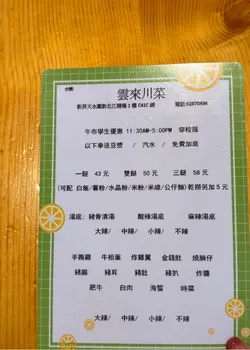 台號:
雲來川菜
新界天水圍新北江商場1樓C41C鋪 電話:62870496
午市學生優惠 11:30AM-5:00PM 穿校服
以下奉送豆漿 / 汽水 / 免費加底
一餸 43元 雙餸 50元 三餸 58元
(可配 白飯/薯粉/水晶粉/米粉/米線/公仔麵)乾撈另加5元
湯底: 豬骨清湯 酸辣湯底 麻辣湯底
大辣/ 中辣/ 小辣/ 不辣
手撕雞 牛栢葉 炸雞翼 金錢肚 燒腩仔
豬腳 豬耳 豬肚 豬扒 炸醬
肥牛 白肉 海蜇 時菜
大辣/ 中辣/ 小辣/ 不辣